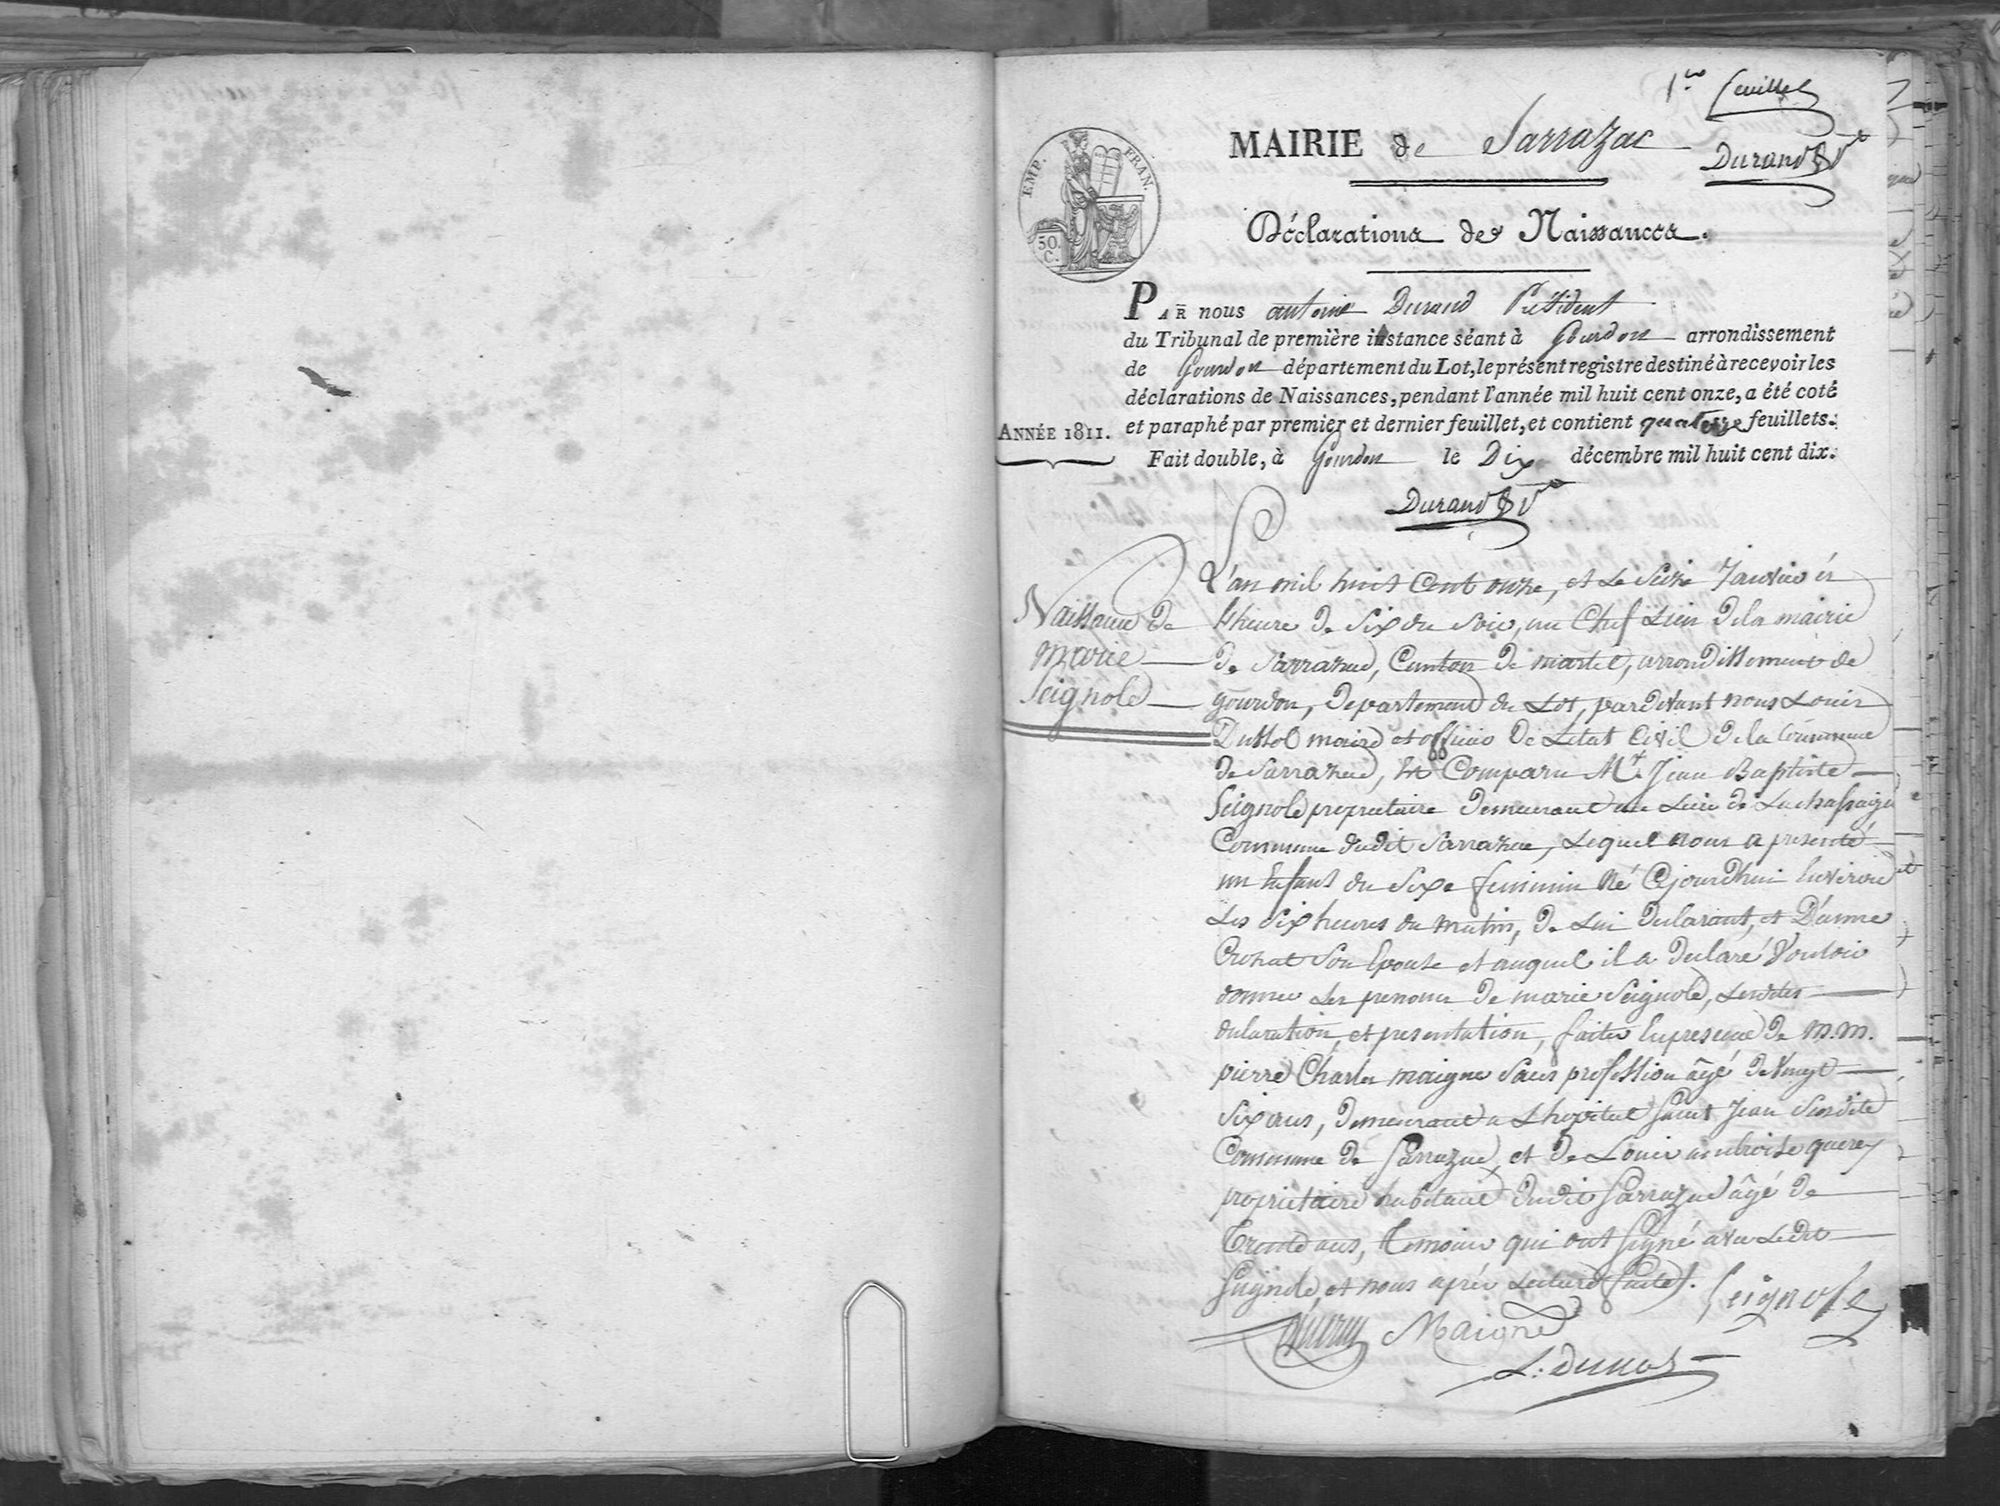 1er feuillet
Durand Pdt
MAIRIE de Sarrazac
EMP. FRAN.
50. C.
Déclarations de Naissances.
PAR nous antoine Durand Président
du Tribunal de première instance séant à Gourdon arrondissement
de Gourdon département du Lot, le présent registre destiné à recevoir les
déclarations de Naissances, pendant l'année mil huit cent onze, a été coté
et paraphé par premier et dernier feuillet, et contient quatorze feuillets.
ANNÉE 1811.
Fait double, à Gourdon le Dix décembre mil huit cent dix.
Durand Pdt
Naissance de
marie
Seignole
L'an mil huit Cent onze, et Le Seize Janvier és
l'heure de Six du Soir, au Chef Lieu de la mairie
de Sarrazac, Canton de martel, arrondissement de
gourdon, Departement du Lot, pardevant nous Louis
Dussol maire et officier de Letat Civil de la Commune
de Sarrazac, Est Comparu Mr. Jean Baptiste
Seignole proprietaire demeurant au Lieu de Lachassaigne
Commune dudit Sarrazac, Lequel nous a presenté
un Enfant du Sexe feminin né Cejourdhui Environ
Les Six heures du matin, de Lui declarant, et D'anne
Crohat Son Epouse et auquel il a declaré Vouloir
donner Les prenoms de marie Seignole, Lesdites
declaration, et presentation, faites En presence de m.m.
pierre Charles maigne Sans profession âgé de Vingt
Six ans, demeurant a Lhopital Saint Jean Susdite
Commune de Sarrazac, et de Louis ambroise querey
propriétaire habitant dudit Sarrazac âgé de
Trente ans, Temoins qui ont Signé avec Ledit
Seignole, et nous après Lecture faite.
Seignole
Maigne
L. Dussol